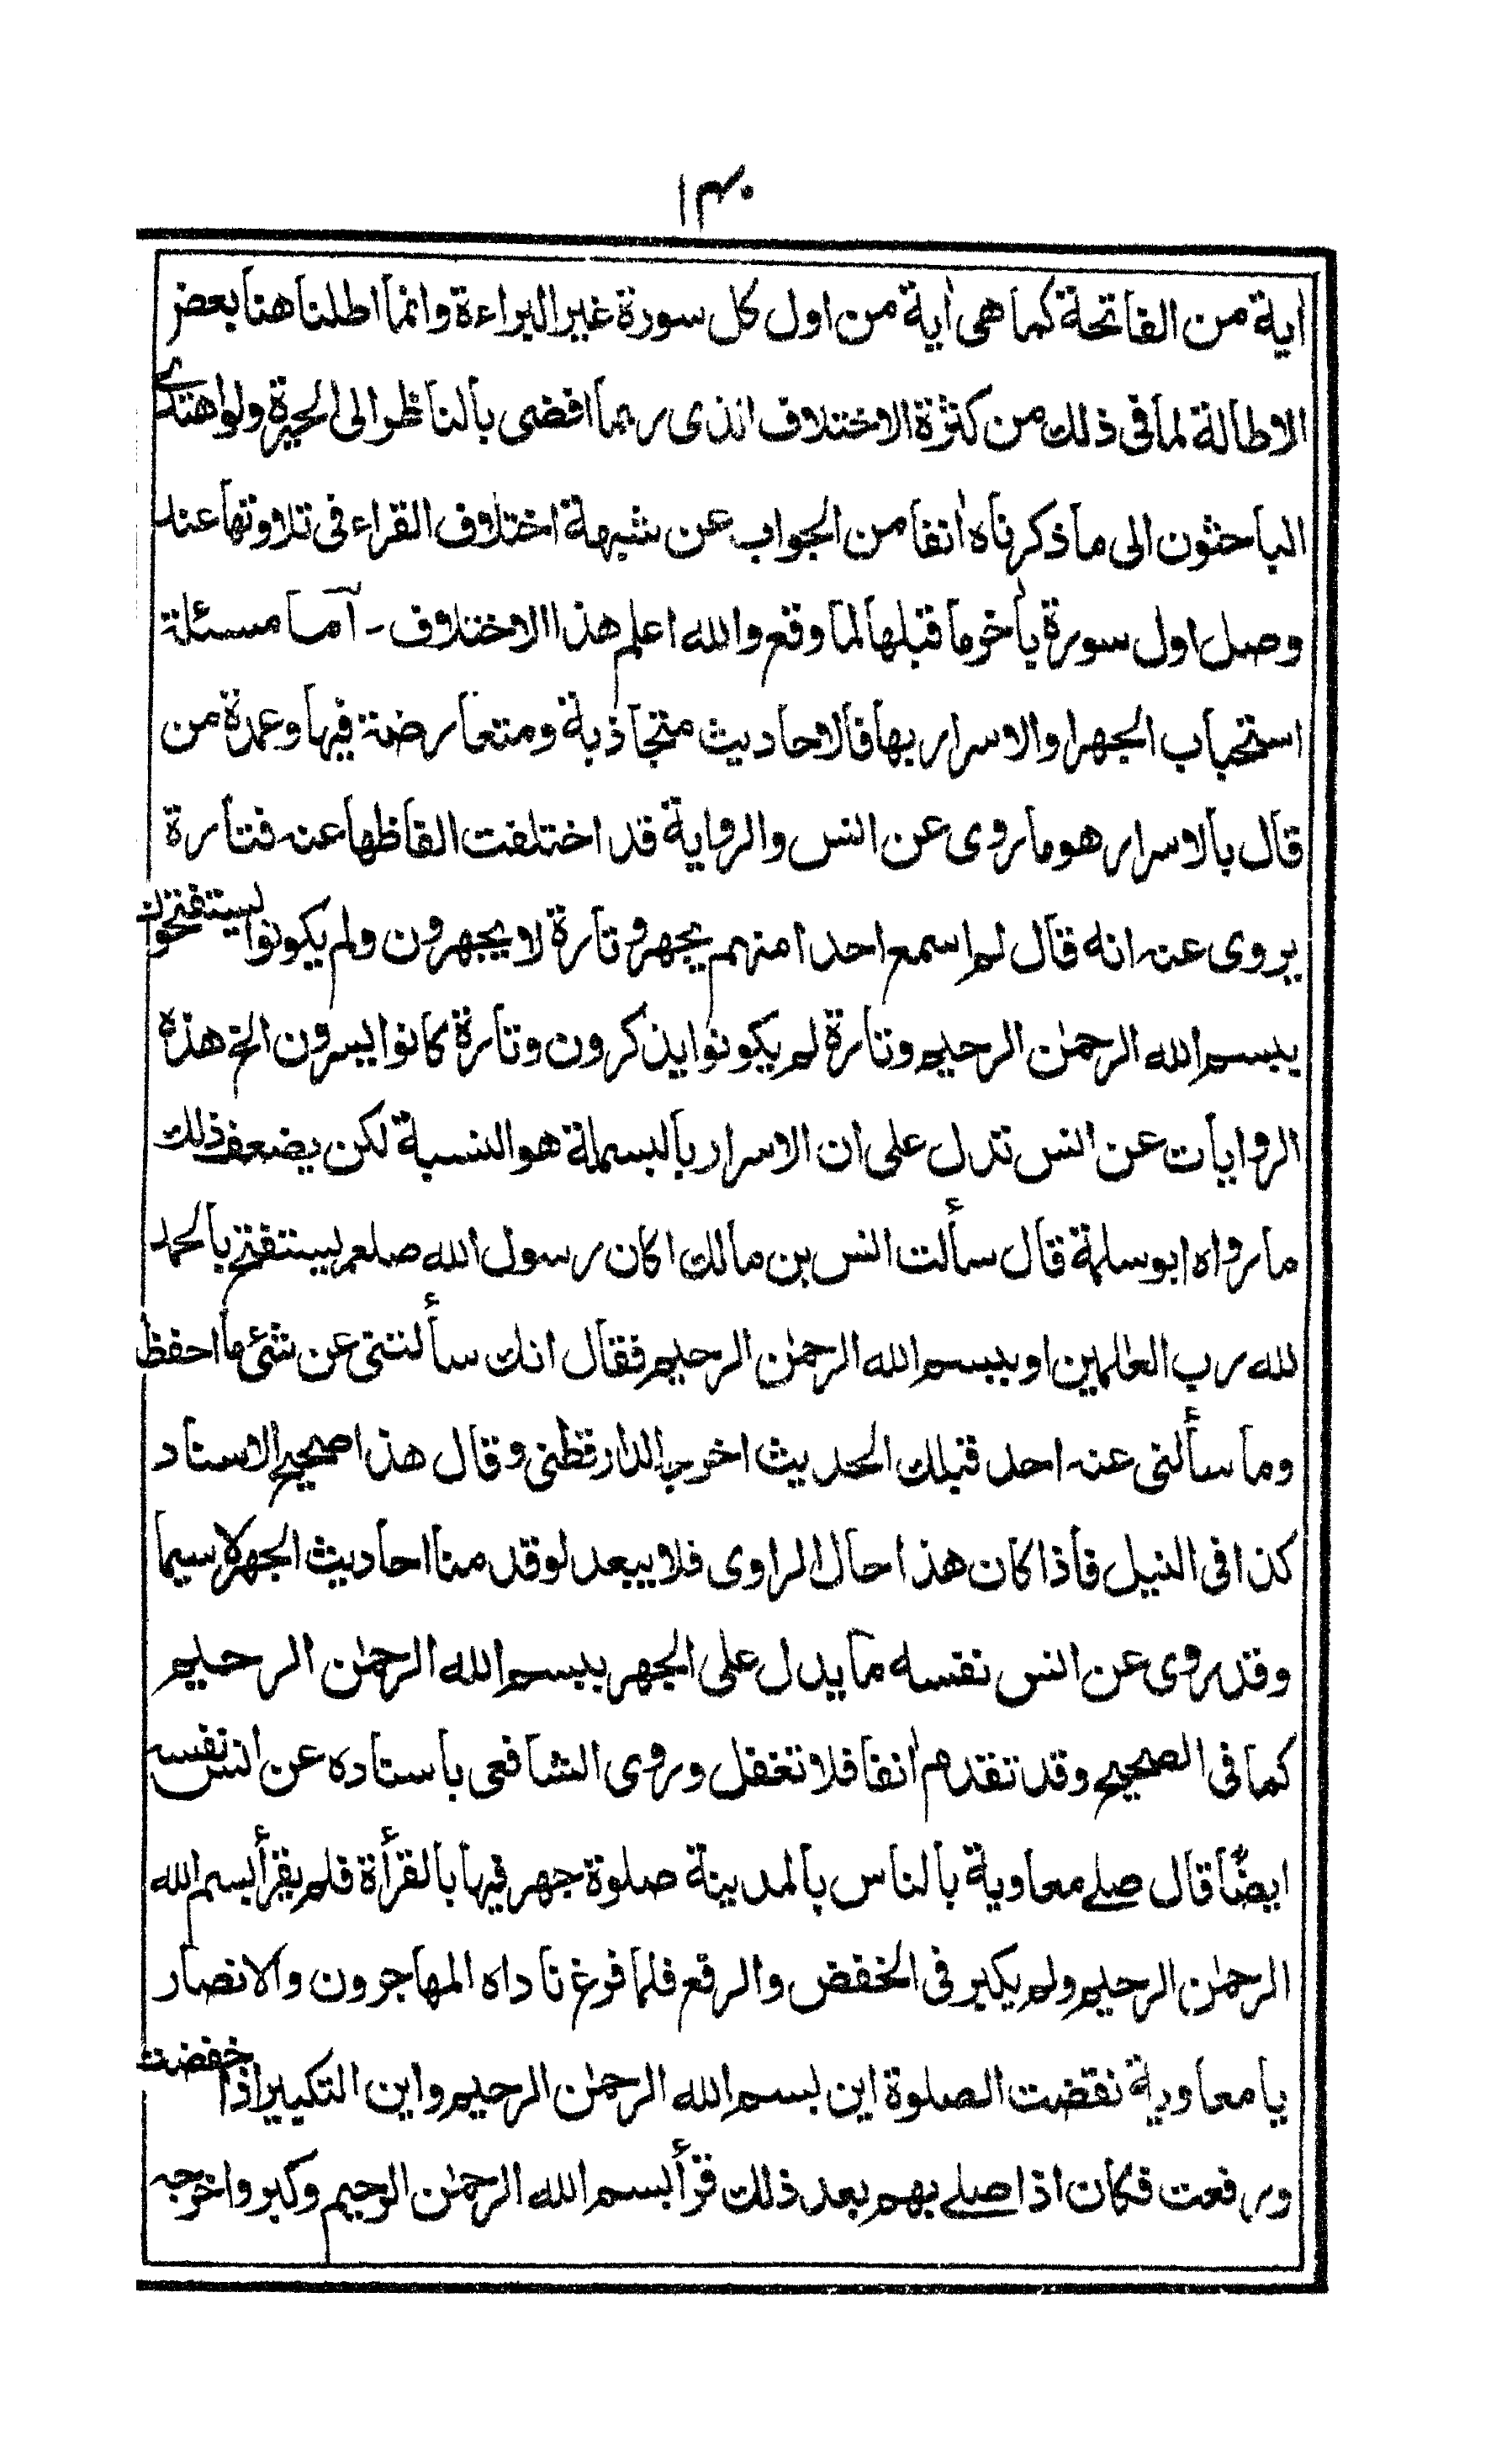 ١٤٠
اٰية من الفاتحة كما هى اٰية من اول كل سورة غير البراءة وانما اطلنا هنا بعض
الاطالة لما فى ذلك من كثرة الاختلاف الذى ربما افضى بالناظر الى الحيرة ولو اهتدى
الباحثون الى ما ذكرناه اٰنفا من الجواب عن شبهة اختلاف القراء فى تلاوتها عند
وصل اول سورة باٰخر ما قبلها لما وقع والله اعلم هذا الاختلاف - آما مسئلة
استحباب الجهر او الاسرار بها فالاحاديث متجاذبة ومتعارضة فيها وعمدة من
قال بالاسرار هو ما روى عن انس والرواية قد اختلفت الفاظها عنه فتارة
يروى عنه انه قال لم اسمع احدا منهم يجهر وتارة لا يجهرون ولم يكونوا يستفتحون
ببسم الله الرحمٰن الرحيم وتارة لم يكونوا يذكرون وتارة كانوا يسرون الخ هذه
الروايات عن انس تدل على ان الاسرار بالبسملة هو النسبة لكن يضعف ذلك
ما رواه ابو سلمة قال سألت انس بن مالك اكان رسول الله صلعم يستفتح بالحمد
لله رب العٰلمين او ببسم الله الرحمٰن الرحيم فقال انك سألتنى عن شئ ما احفظ
وما سألنى عنه احد قبلك الحديث اخرجه الدارقطنى وقال هذا صحيح الاسناد
كذا فى النيل فاذا كان هذا حال الراوى فلا يبعد لو قدمنا احاديث الجهر لا سيما
وقد روى عن انس نفسه ما يدل على الجهر ببسم الله الرحمٰن الرحيم
كما فى الصحيح وقد تقدم اٰنفا فلا تغفل وروى الشافعى باسناده عن انس نفسه
ايضًا قال صلے معاوية بالناس بالمدينة صلوة جهر فيها بالقرأة فلم يقرأ بسم الله
الرحمٰن الرحيم ولم يكبر فى الخفض والرفع فلما فرغ ناداه المهاجرون والانصار
يا معاوية نقضت الصلوة اين بسم الله الرحمٰن الرحيم واين التكبير اذا خفضت
ورفعت فكان اذا صلے بهم بعد ذلك قرأ بسم الله الرحمٰن الرحيم وكبر واخرجه